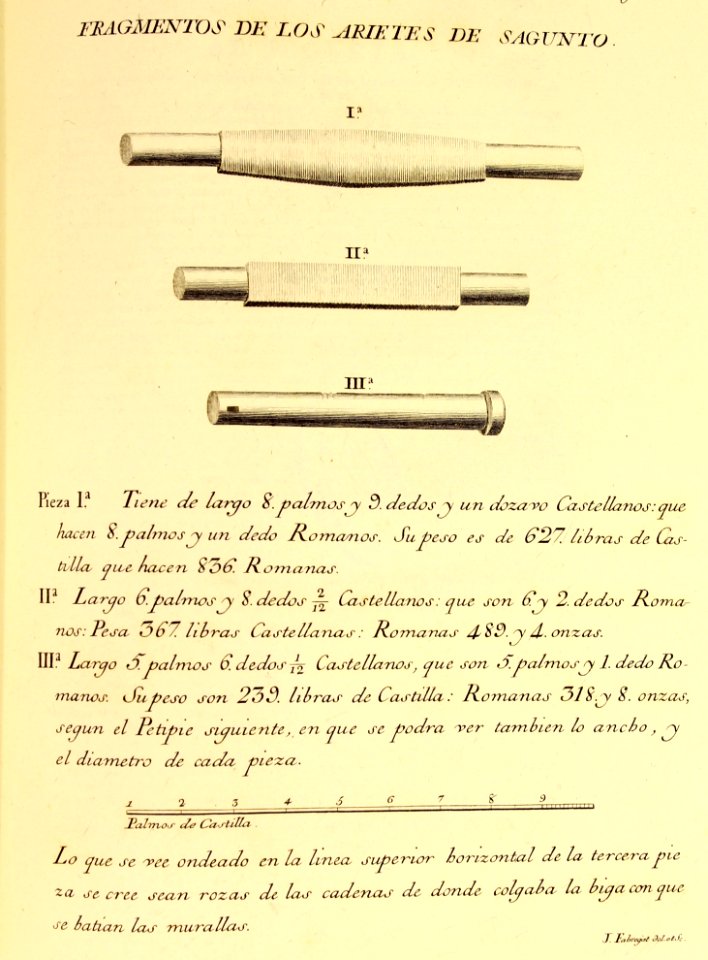 FRAGMENTOS DE LOS ARIETES DE SAGUNTO.
I.ª
II.ª
III.ª
Pieza I.ª Tiene de largo 8. palmos y 9. dedos y un dozavo Castellanos: que
hacen 8. palmos y un dedo Romanos. Su peso es de 627. libras de Cas-
tilla que hacen 836. Romanas.
II.ª Largo 6. palmos y 8. dedos 2/12 Castellanos: que son 6. y 2. dedos Roma-
nos: Pesa 367. libras Castellanas: Romanas 489. y 4. onzas.
III.ª Largo 5. palmos 6. dedos 1/12 Castellanos, que son 5. palmos y 1. dedo Ro-
manos. Su peso son 239. libras de Castilla: Romanas 318. y 8. onzas,
segun el Petipie siguiente, en que se podra ver tambien lo ancho, y
el diametro de cada pieza.
1 2 3 4 5 6 7 8 9
Palmos de Castilla.
Lo que se vee ondeado en la linea superior horizontal de la tercera pie
za se cree sean rozas de las cadenas de donde colgaba la biga con que
se batian las murallas.
J. Fabregat del. et Sc.